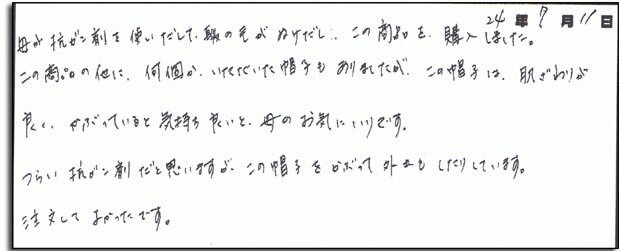 24年7月11日
母が抗ガン剤を使いだして、髪の毛がぬけだし、この商品を購入しました。
この商品の他に、何個か、いただいた帽子もありましたが、この帽子は、肌ざわりが
良く、かぶっていると気持ち良いと、母のお気にいりです。
つらい抗ガン剤だと思いますが、この帽子をかぶって外出もしたりしています。
注文してよかったです。